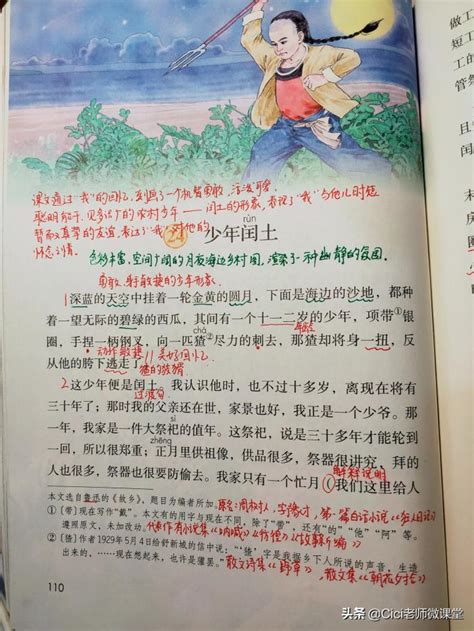 课文通过“我”的回忆,刻画了一个机智勇敢、活泼可爱
聪明能干、见多识广的农村少年——闰土的形象,表现了“我”与他儿时短
暂而真挚的友谊,表达了“我”对他的
怀念之情。
rùn
24 少年闰土
色彩丰富,空间广阔的月夜海边乡村图,渲染了一种幽静的氛围。
勇敢、身手敏捷的少年形象。
1深蓝的天空中挂着一轮金黄的圆月,下面是海边的沙地,都种
着一望无际的碧绿的西瓜,其间有一个十一二岁的少年,项带①银
chá
圈,手捏一柄钢叉,向一匹猹②尽力的刺去,那猹却将身一扭,反
从他的胯下逃走了。
动作敏捷
美好回忆
猹的狡猾
2这少年便是闰土。我认识他时,也不过十多岁,离现在将有
过渡句
三十年了;那时我的父亲还在世,家景也好,我正是一个少爷。那
sì
一年,我家是一件大祭祀的值年。这祭祀,说是三十多年才能轮到
zhēng
一回,所以很郑重;正月里供祖像,供品很多,祭器很讲究,拜的
解释说明
人也很多,祭器也很要防偷去。我家只有一个忙月(我们这里给人
本文选自鲁迅的《故乡》,题目为编者所加。
原名:周树人,字豫才,第一篇白话小说《狂人日记》
①〔带〕现在写作“戴”。本文有的用字与现在不同,除了“带”,还有“的”“他”“阿”等。
遵照原文,未加改动。
代表作有小说集《呐喊》《彷徨》《故事新编》
②〔猹〕作者1929年5月4日给舒新城的信中说:“‘猹’字是我据乡下人所说的声音,生造
出来的,……现在想起来,也许是獾罢。”
散文诗集《野草》,散文集《朝花夕拾》
110
头条 @Cici老师微课堂
做工
短工
工的
管祭